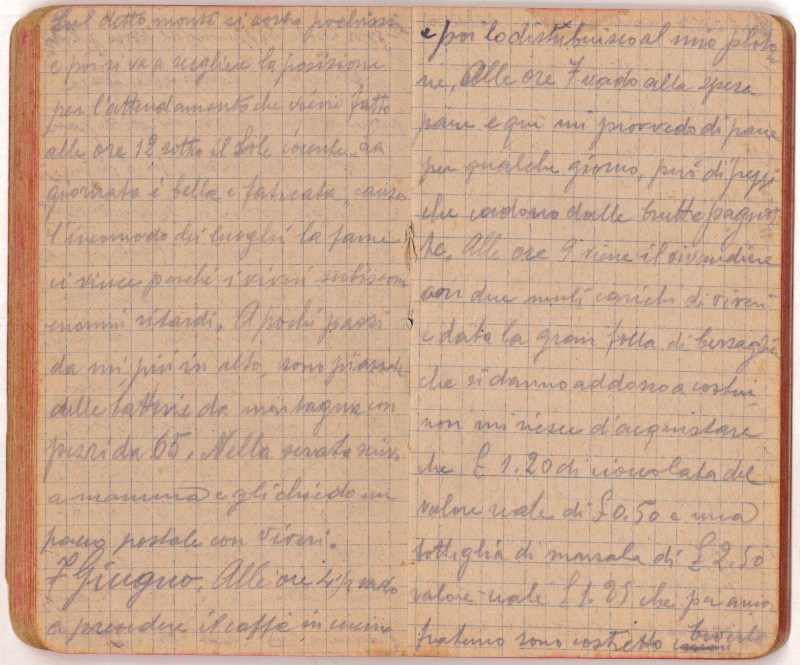 Sul detto monte si sosta pochissimo
e poi si va a scegliere la posizione
per l'attendamento che viene fatto
alle ore 12 sotto il Sole cocente. La
giornata è bella e faticata, causa
l'incomodo dei luoghi la fame
ci vince perchè i viveri subiscono
enormi ritardi. A pochi passi
da mi, più in alto, sono piazzate
delle batterie da montagna con
pezzi da 65. Nella serata scrivo
a mamma e gli chiedo un
pacco postale con viveri.
7 Giugno. Alle ore 4 1/2 vado
a prendere il caffè in cucina
e poi lo distribuisco al mio ploto=
ne. Alle ore 7 vado alla spesa
pane e qui mi provvedo di pane
per qualche giorno, però di pezzi
che cadono dalle brutte pagnot
te. Alle ore 9 viene il vivandiere
con due muli carichi di viveri
e data la gran folla di bersaglieri
che si danno addosso a costui,
non mi riesce d'acquistare
che £ 1.20 di cioccolata del
valore reale di £ 0.50 e una
bottiglia di marsala di £ 2.50
valore reale £ 1.25 che per amor
fraterno sono costretto berla